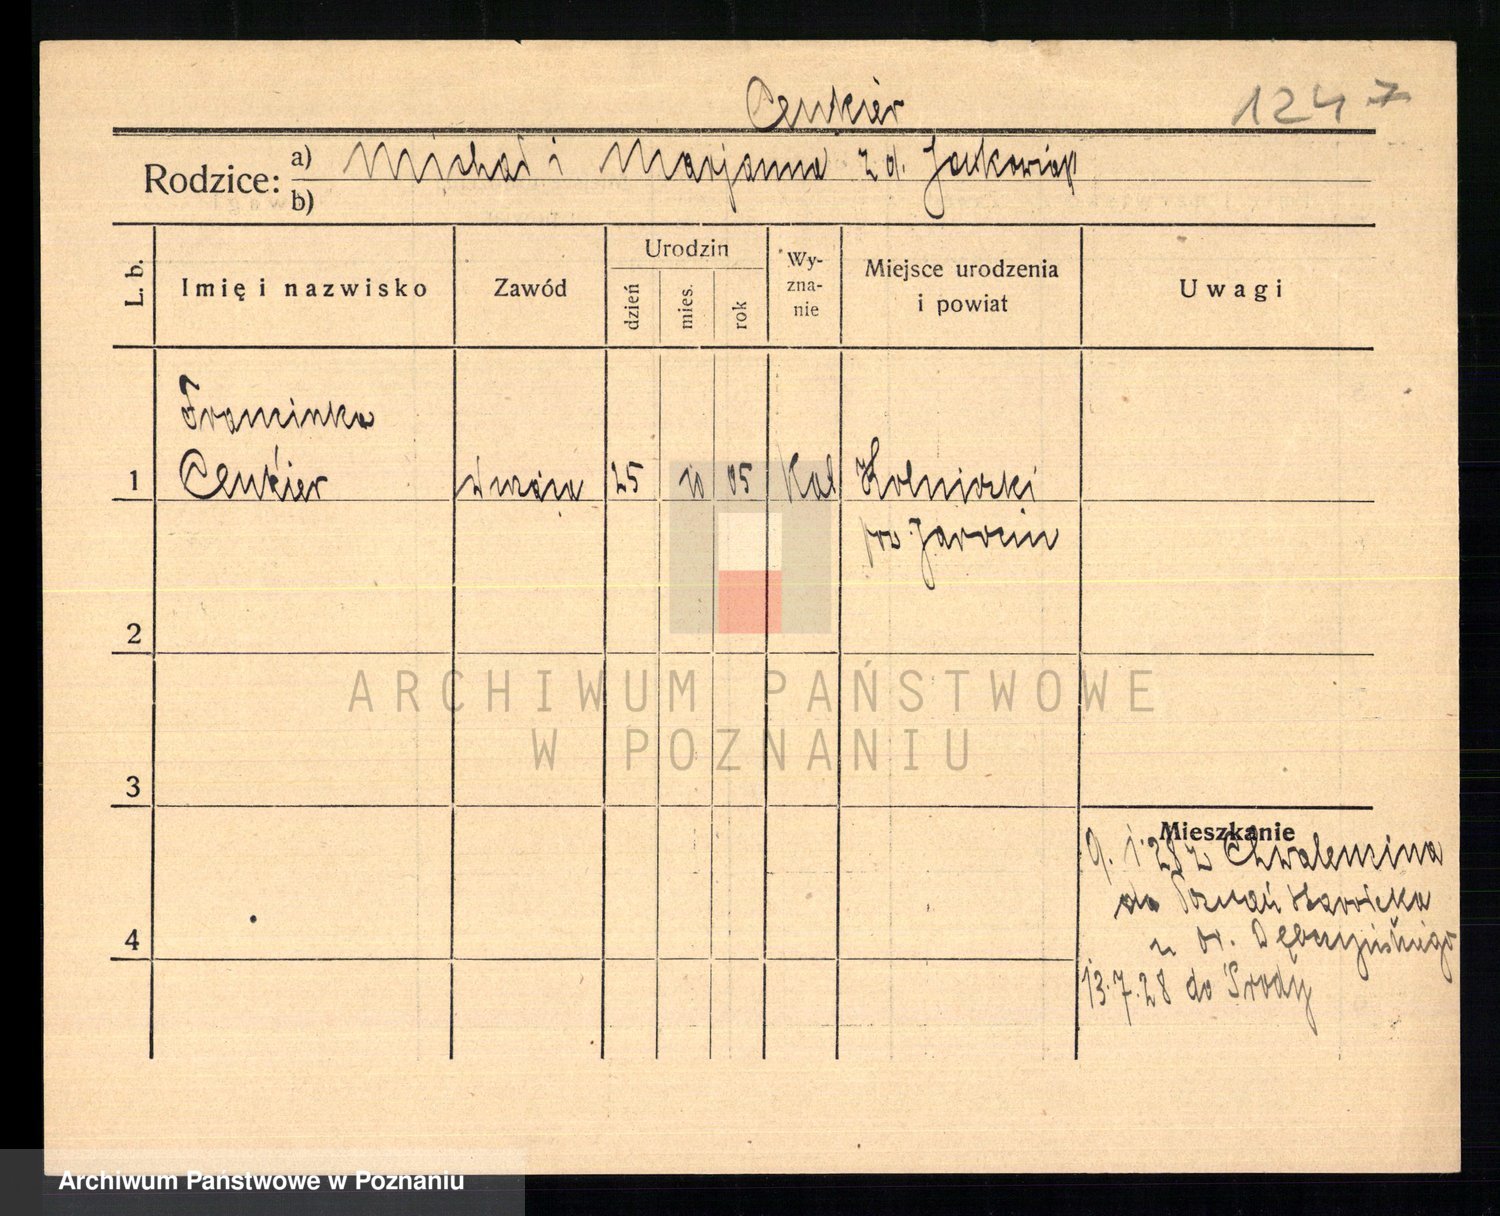 Cenkier
1247
Rodzice:
a) Michał i Marjanna z d. Jankowiak
b)
L. b.
Imię i nazwisko
Zawód
Urodzin
dzień
mies.
rok
Wy-
zna-
nie
Miejsce urodzenia
i powiat
Uwagi
Franciszka
1 Cenkier 25 10 05 Kat
pow Jarocin
2
3
4
Mieszkanie
9. 1. 28 z Chwalencina
do Poznań
13.7.28 do Środy
ARCHIWUM PAŃSTWOWE
W POZNANIU
Archiwum Państwowe w Poznaniu